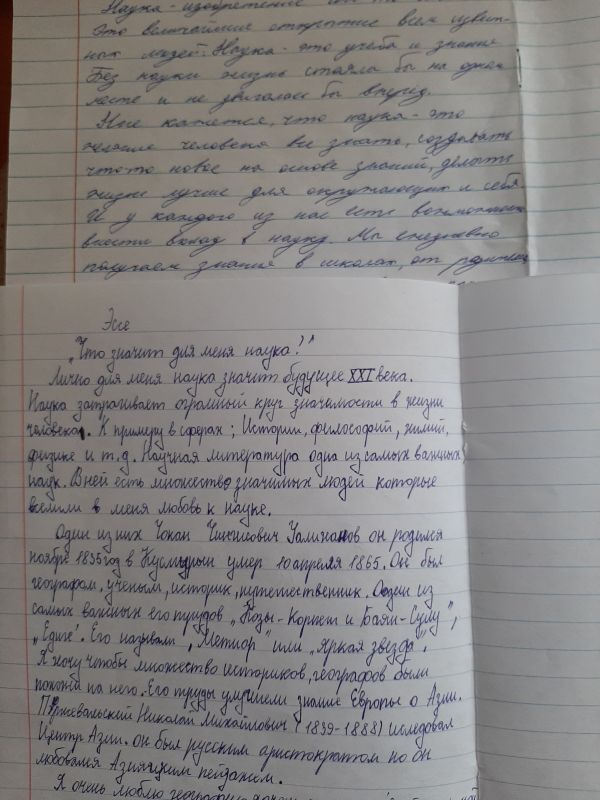 Наука - изобретение
Это величайшее открытие всем извест-
ных людей. Наука - это учеба и знания
Без науки жизнь стояла бы на одном
месте и не двигалась бы вперёд.
Мне кажется, что наука - это
желание человека все знать, создавать
что то новое на основе знаний, делать
жизнь лучше для окружающих и себя.
И у каждого из нас есть возможность
внести вклад в науку. Мы ежедневно
получаем знания в школах, от родителей
Эссе
"Что значит для меня наука?"
Лично для меня наука значит будущее XXI века.
Наука затрагивает огромный круг значимости в жизни
человека. К примеру в сферах; Истории, философий, химий,
физике и т.д. Научная литература одна из самых важных
наук. В ней есть множество значимых людей которые
вселили в меня любовь к науке.
Один из них Чокан Чингисович Уалиханов он родился
ноябре 1835 год в Кусмурын умер 10 апреля 1865. Он был
географом, ученым, историк, путешественник. Один из
самых важных его трудов "Козы-Корпеш и Баян-Сулу",
"Едиге". Его называли "Метиор" или "яркая звезда".
Я хочу чтобы множество историков, географов были
похожи на него. Его труды улучшили знание Европы о Азии.
Пржевальский Николай Михайлович (1839-1888) иследовал
Центр Азии. он был русским аристократом но он
любовался Азиятским пейзажем.
Я очень люблю географию